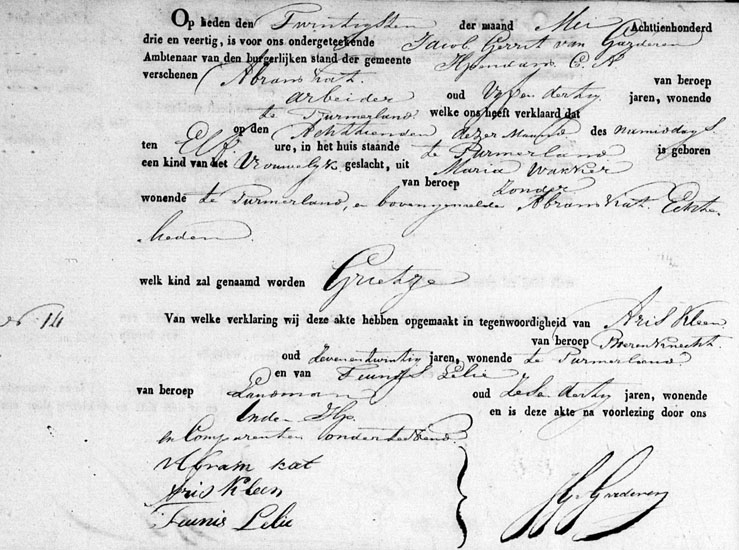 Op heden den Twintigsten der maand Mei Achttienhonderd
drie en veertig, is voor ons ondergeteekende Jacob Gerrit van Garderen
Ambtenaar van den burgerlijken stand der gemeente Ilpendam C. A
verschenen Abram Kat van beroep
arbeider oud Vyf en dertig jaren, wonende
te Purmerland welke ons heeft verklaard dat
op den Achttienden dezer Maand des namiddags
ten Elf ure, in het huis staande te Purmerland is geboren
een kind van het Vrouwelyk geslacht, uit Maria Wakker
van beroep Zonder
wonende te Purmerland, en bovengemelde Abram Kat. Echte
lieden
welk kind zal genaamd worden Grietje
No 14
Van welke verklaring wij deze akte hebben opgemaakt in tegenwoordigheid van Aris Kleen
van beroep Boerenknecht
oud Zevenentwintig jaren, wonende te Purmerland
en van Teunis Lelie
van beroep Landman oud Zes en dertig jaren, wonende
en is deze akte na voorlezing door ons
en Comparenten onderteekend.
Abram kat
Aris Kleen
Teunis Lelie